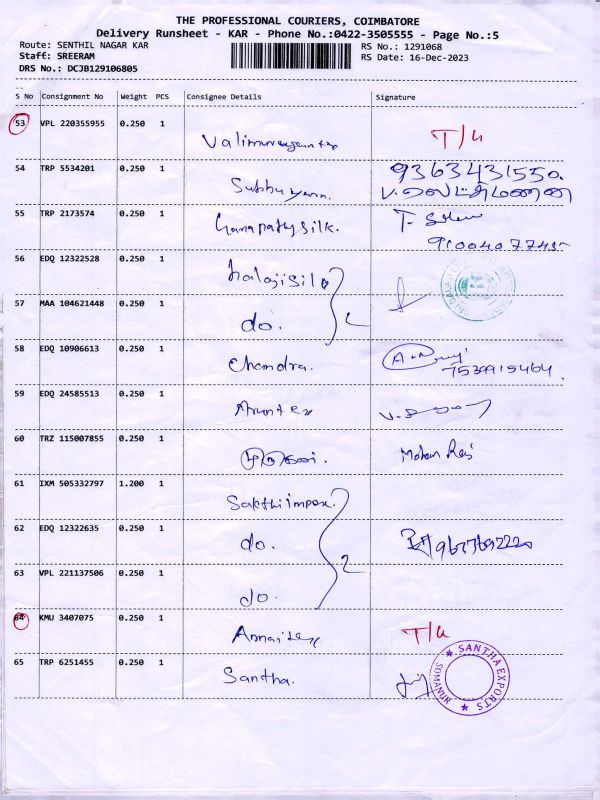 THE PROFESSIONAL COURIERS, COIMBATORE
Delivery Runsheet - KAR - Phone No.:0422-3505555 - Page No.:5
Route: SENTHIL NAGAR KAR
RS No.: 1291068
Staff: SREERAM
RS Date: 16-Dec-2023
DRS No.: DCJB129106805
S No Consignment No Weight PCS Consignee Details Signature
53 VPL 220355955 0.250 1 T/U
54 TRP 5534201 0.250 1 9363431550
55 TRP 2173574 0.250 1 Ganapathy silk.
56 EDQ 12322528 0.250 1 balaji silk
57 MAA 104621448 0.250 1 do.
58 EDQ 10906613 0.250 1 Chandra. 7539915464
59 EDQ 24585513 0.250 1 Arun tex
60 TRZ 115007855 0.250 1 Mohan Raj
61 IXM 505332797 1.200 1 Sakthi impex.
62 EDQ 12322635 0.250 1 do. 2
63 VPL 221137506 0.250 1 do.
64 KMU 3407075 0.250 1 Annai tex T/U
65 TRP 6251455 0.250 1 Santha.
SANTHA EXPORTS
SOMANUR